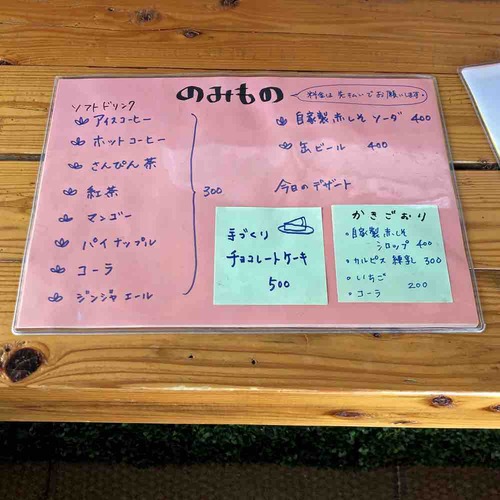 のみもの
料金は先払いでお願いします。
ソフトドリンク
アイスコーヒー
ホットコーヒー
さんぴん茶
紅茶
マンゴー
パイナップル
コーラ
ジンジャエール
300
自家製赤しそソーダ 400
缶ビール 400
今日のデザート
手づくり
チョコレートケーキ
500
かきごおり
・自家製赤しそ
シロップ 400
・カルピス練乳 300
・いちご
200
・コーラ